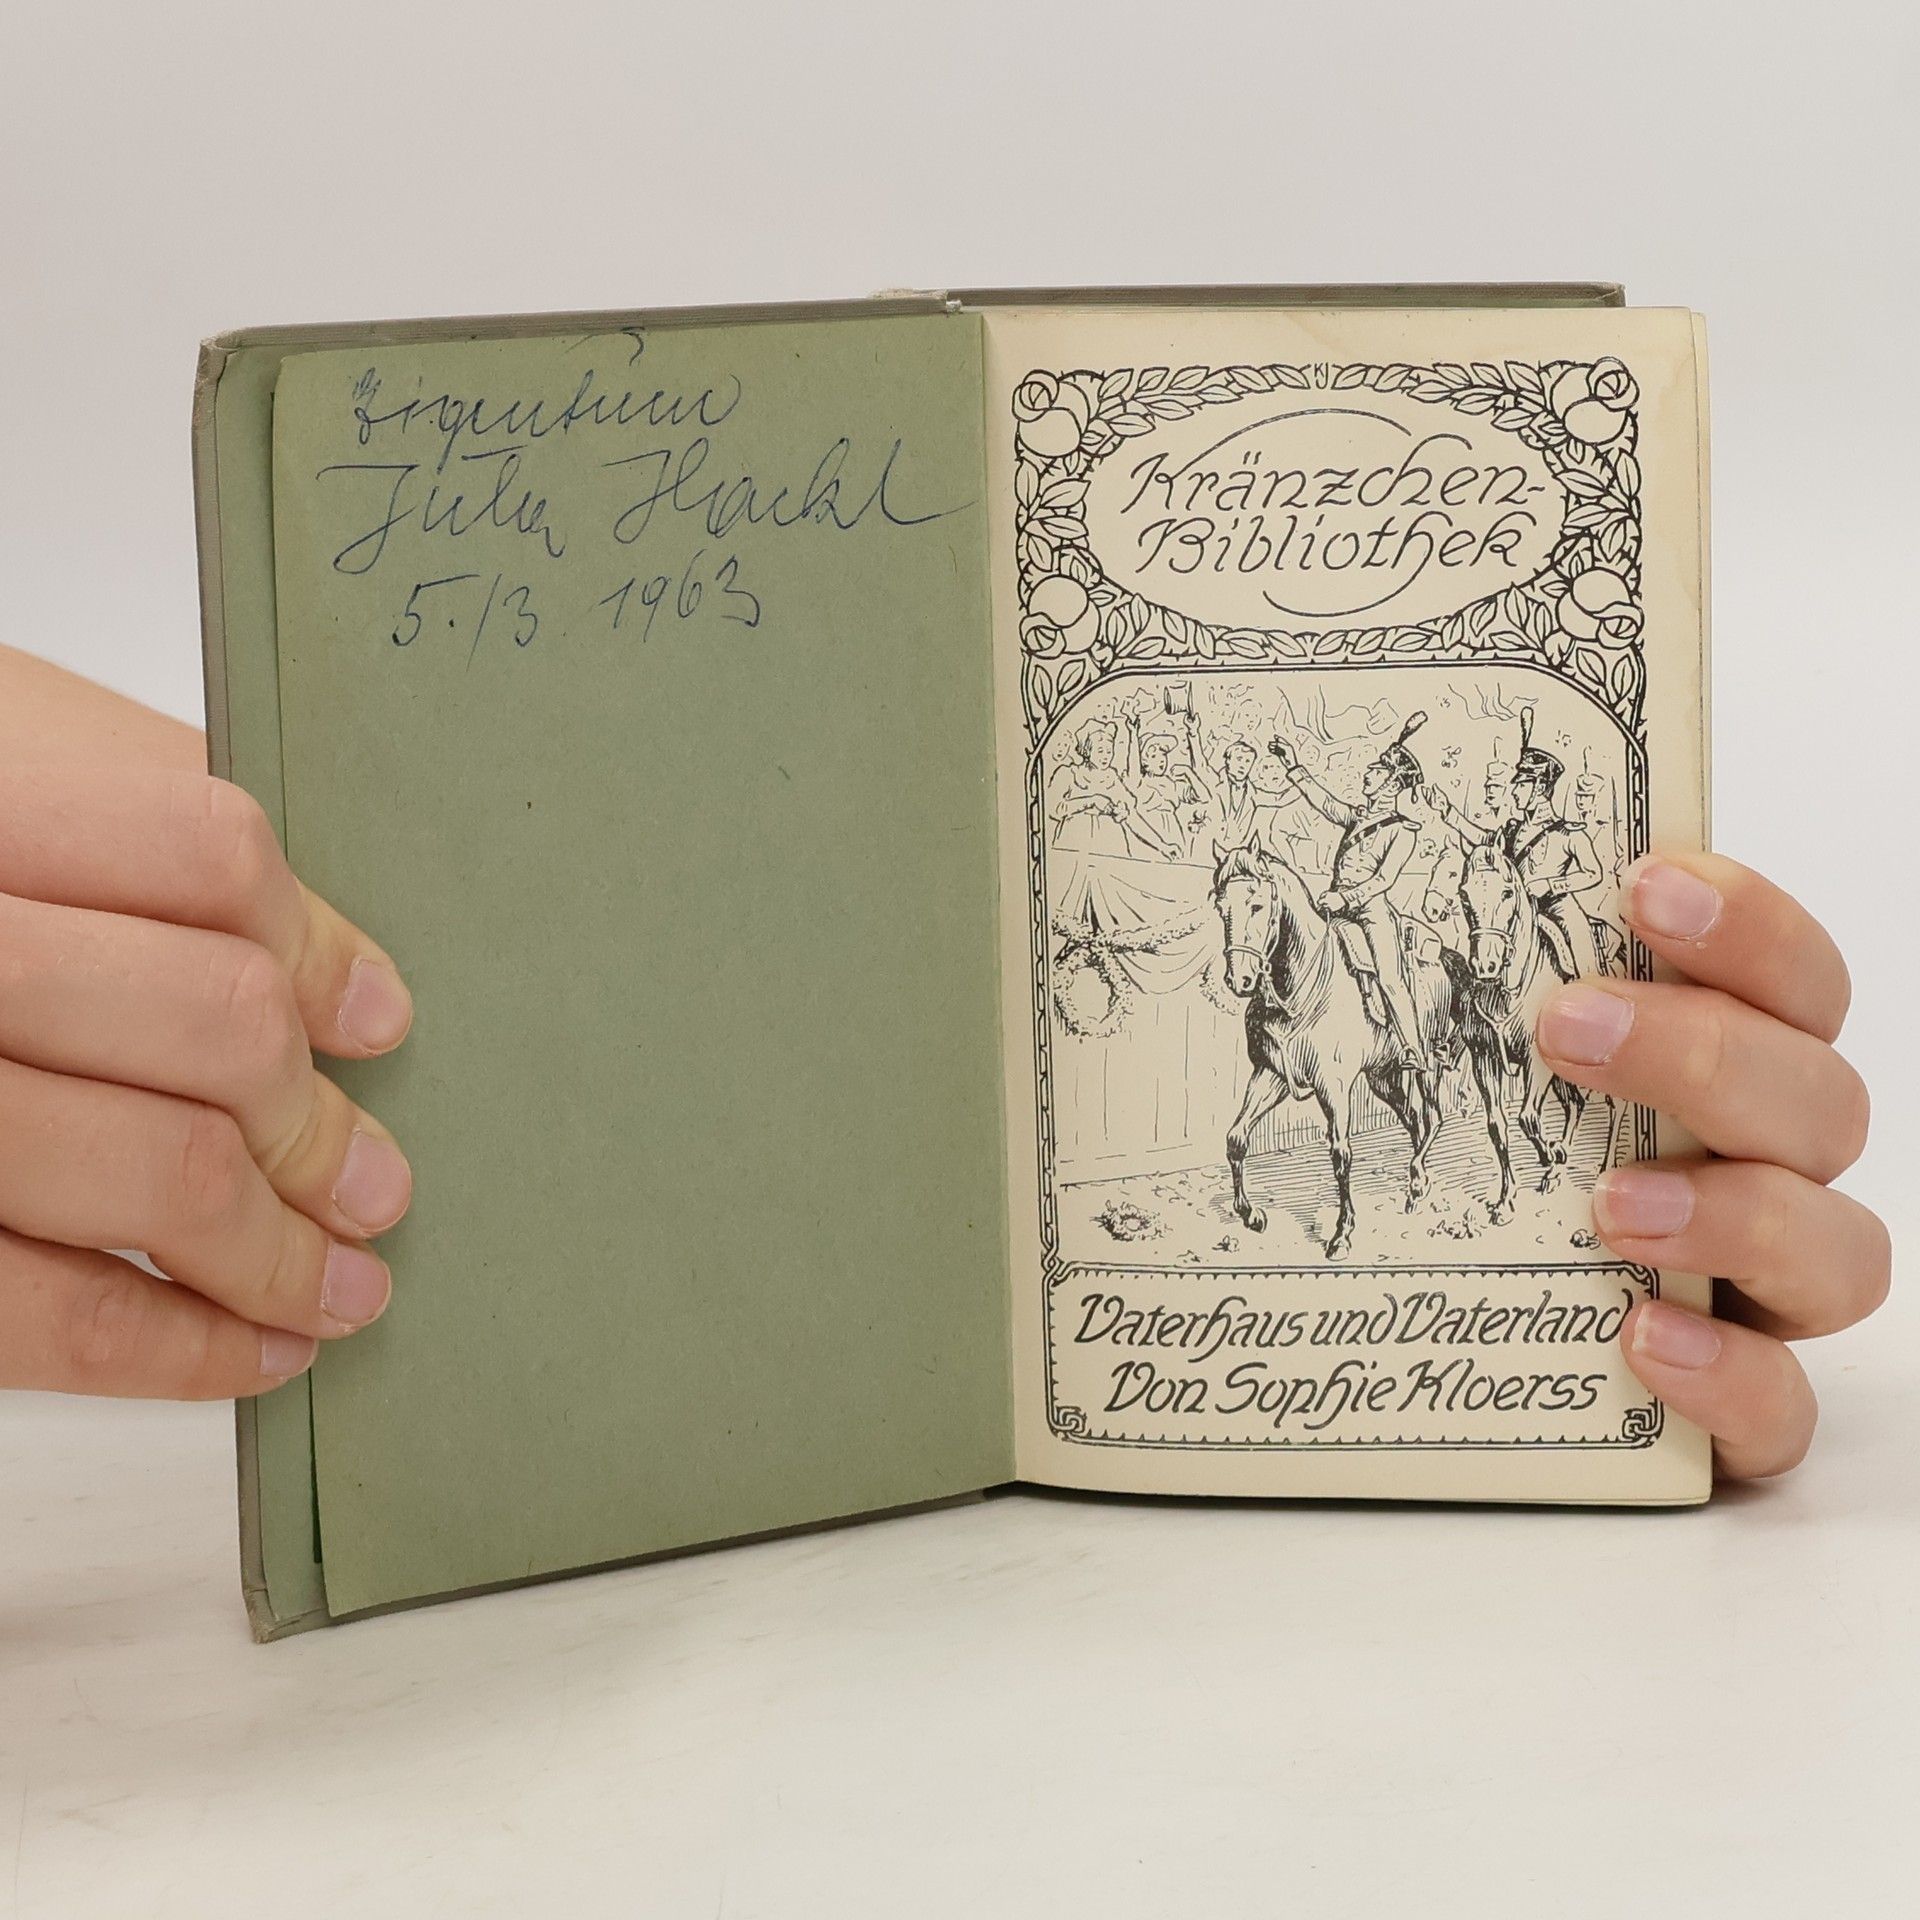 Eigentum
Julia Hackl
5./3 1963
Kränzchen-
Bibliothek
Vaterhaus und Vaterland
Von Sophie Kloerss